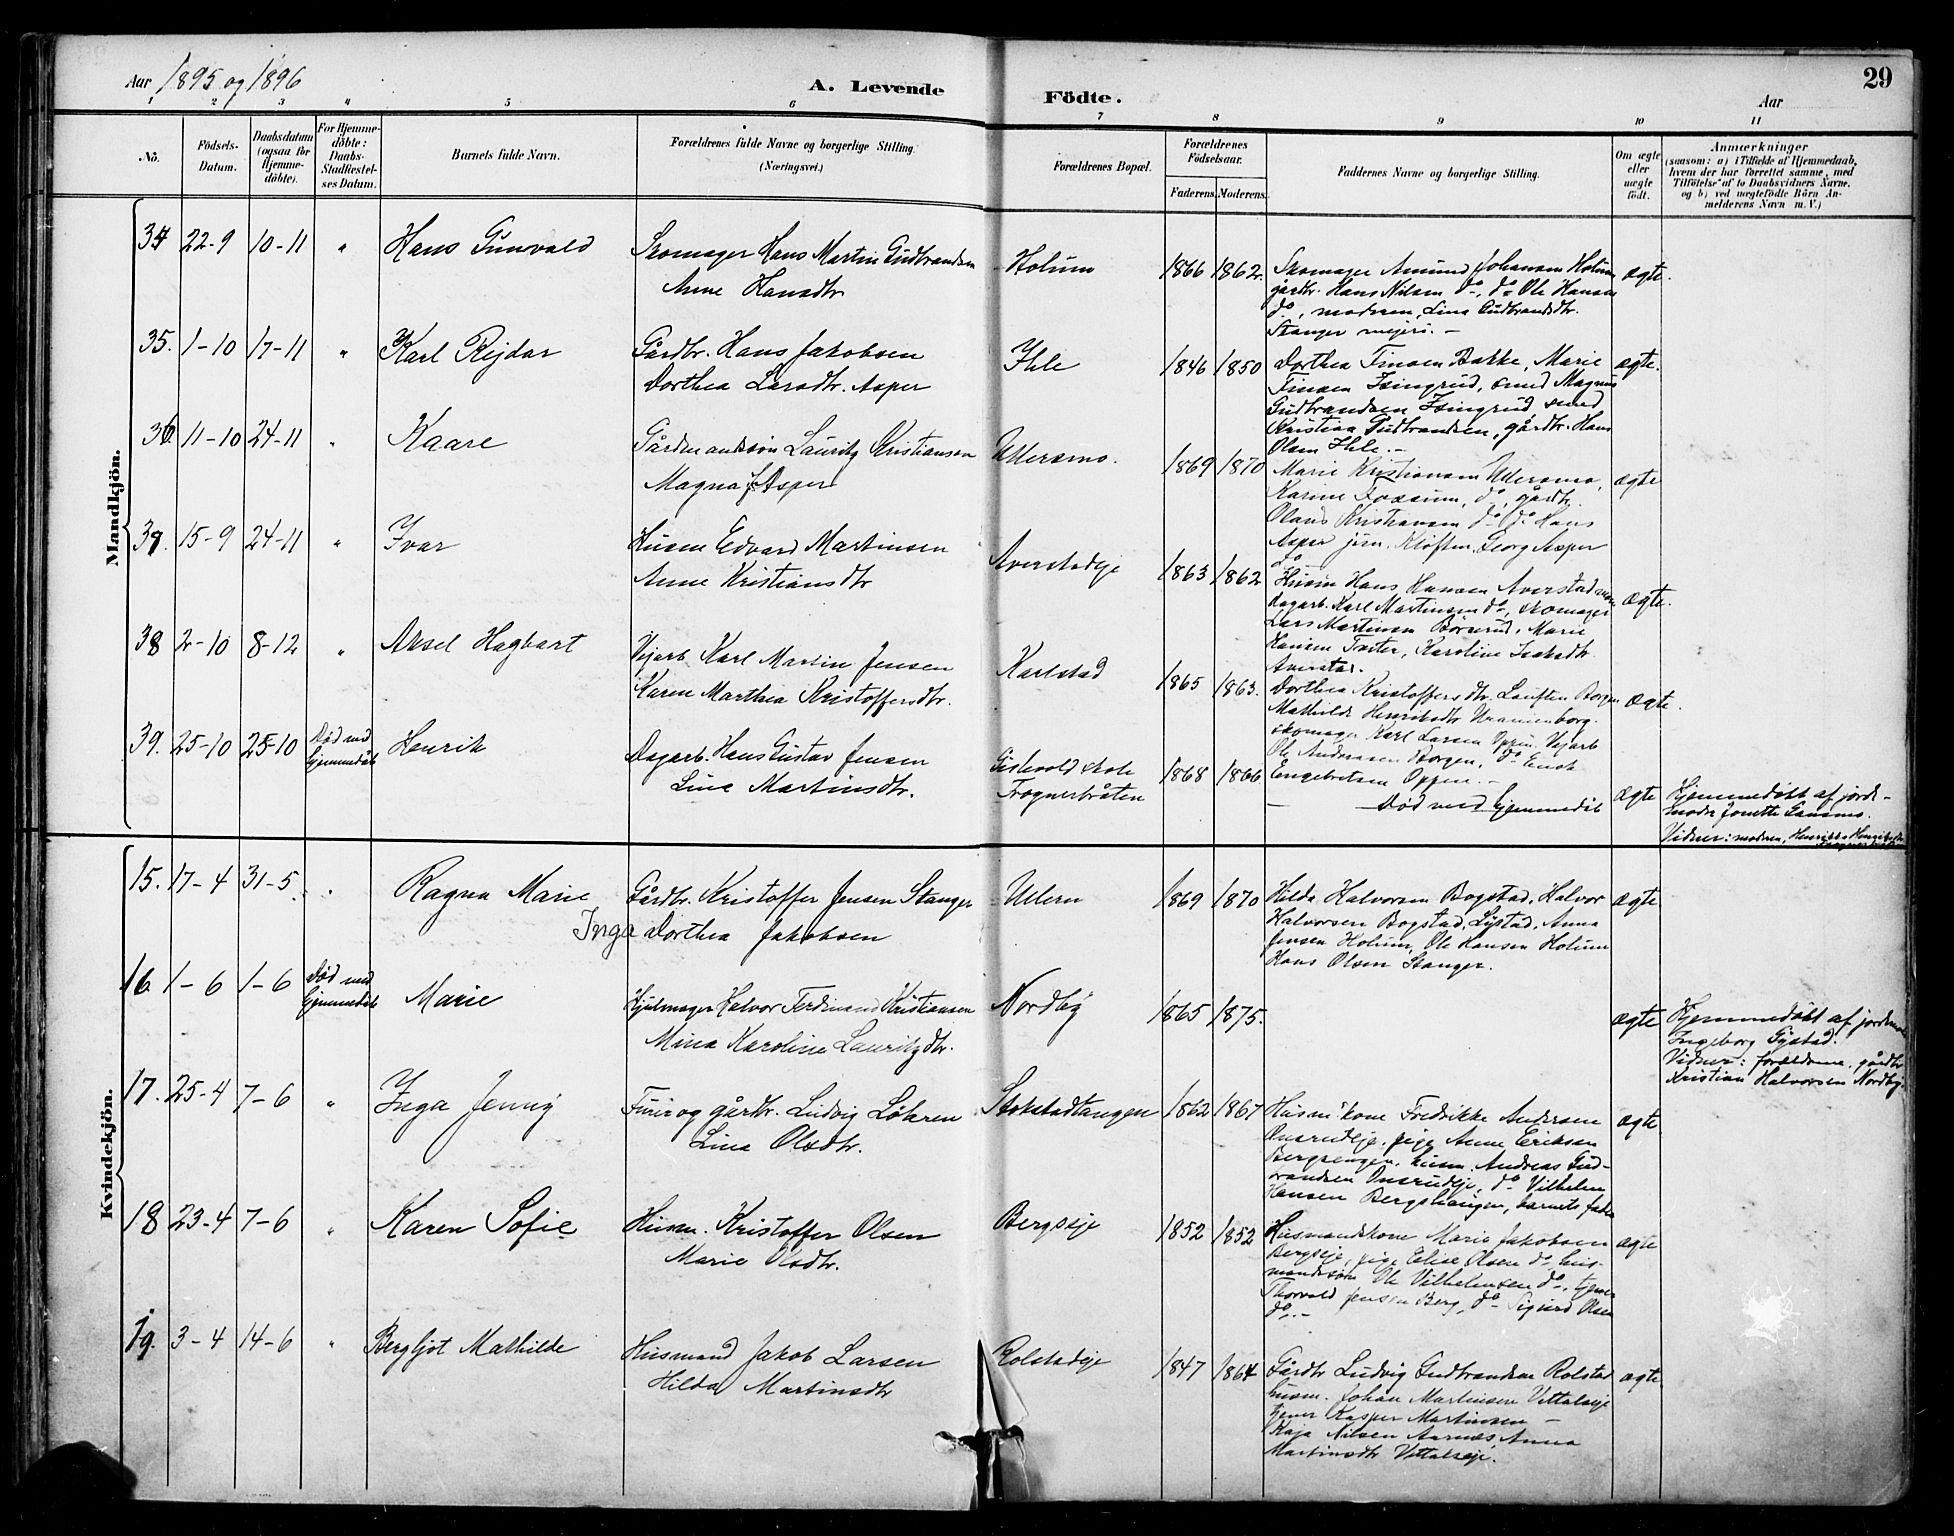 Aar 1895 og 1896
A. Levende
Födte.
Aar
29
1 2 3 4 5 6 7 8 9 10 11
No.
Födsels-Datum.
Daabsdatum (ogsaa for Hjemme-döbte).
For Hjemme-döbte: Daabs-Stadfæstel-ses Datum.
Barnets fulde Navn.
Forældrenes fulde Navne og borgerlige Stilling (Næringsvei.)
Forældrenes Bopæl.
Forældrenes Födselsaar.
Faderens. Moderens.
Faddernes Navne og borgerlige Stilling.
Om ægte eller uægte födt.
Anmærkninger
(saasom: a) i Tilfælde af Hjemmedaab,
hvem der har forrettet samme, med
Tilföielse af to Daabsvidners Navne,
og b) ved uægtefödte Börn An-
melderens Navn m. V.)
Mandkjön.
34 22-9 10-11 " Hans Gunvald
Skomager Hans Martin Gudbrandsen
Anne Hansdtr
Holum 1866 1862.
Skomager Amund Johansen Holum
gårdbr. Hans Nilsen do, do Ole Hansen
do, modren, Lina Gudbrandsdtr.
Stanger mejeri. -
ægte.
35. 1-10 17-11 " Karl Rejdar
Gårdbr. Hans Jakobsen
Dorthea Larsdtr. Asper
Ihle 1846 1850
Dorthea Finsen Bakke, Marie
Finsen Isingrud, smed Magnus
Gudbrandsen Isingrud smed
Kristian Gudbrandsen, gårdbr. Hans
Olsen Ihle. -
ægte.
36 11-10 24-11 " Kaare
Gårdmandssön Lauritz Kristiansen
Magna J. Asper
Ullersmo. 1869 1870
Marie Kristiansen Ullersmo,
Karine Fossum, do, gårdbr.
Olaus Kristiansen do, do Hans
Asper jun. Kløften, Georg Asper
do
ægte
37. 15-9 24-11 " Ivar
Husm Edvard Martinsen
Anne Kristiansdtr
Averstadeje 1863 1862
Husm Hans Hansen Averstad
Dagarb. Karl Martinsen do, skomager
Lars Martinsen Börsrud, Marie
Hansen Trøter, Karoline Isaksdtr
Averstad.
ægte.
38 2-10 8-12 " Aksel Hagbart
Vejarb. Karl Martin Jensen
Karen Marthea Kristoffersdtr.
Karlstad 1865 1863.
Dorthea Kristoffersdtr. Borgen
Mathilde Henriksdtr Uranienborg.
skomager Karl Larsen Oppen, Vejarb
Ole Andreassen Borgen, do
Engebretsen Oppen. -
ægte.
39. 25-10 25-10 Död med hjemmedåb Henrik
Dagarb. Hans Gustav Jensen
Lina Martinsdtr.
Gislevold skole
Trognerbråten
1868 1866
- Død med hjemmedåb
ægte
Hjemmedøbt af jorde-
moder Jonette
Vidner: modren,
Kvindekjön.
15. 17-4 31-5. " Ragna Marie
Inga
Gårdbr. Kristoffer Jensen Stanger
Dorthea Jakobsen
Ullern 1869 1870
Hilda Halvorsen Bogstad, Halvor
Halvorsen Bogstad, Lystad, Anna
Jensen Holum, Ole Hansen Holum
Hans Olsen Stanger.
ægte
16 1-6 1-6 Död med hjemmedåb Marie
Hjulmager Halvor Ferdinand Kristiansen
Mina Karoline Lauritzdtr.
Nordby 1865 1875.
ægte
Hjemmedöbt af jordemor
Ingeborg Gystad.
Vidner: forældrene, gårdbr
Kristian Halvorsen Nordby.
17. 25-4 7-6 " Inga Jenny
Furir og gårdbr. Ludvig Løkren
Lina Olsdtr.
Stokstadtangen 1862 1867
Husm.kone Fredrikke Andersen
Onsrudeje, pige Anne Eriksen
Bergsengen, husm. Andreas Gud-
brandsen Onsrudeje, do Vilhelm
Hansen Bergshaugen, barnets fader
ægte
18 23-4 7-6 " Karen Sofie
Husm. Kristoffer Olsen
Marie Olsdtr.
Bergseje 1852 1852
Husmandskone Marie Jakobsen
Bergseje, pige Elise Olsen do, hus-
mandssön Ole Vilhelmsen do, tjener
Thorvald Jensen Berg, do Sigurd Olsen
do. -
ægte
19. 3-4 14-6 " Bergljot Mathilde
Husmand Jakob Larsen
Hilda Martinsdtr
Rolstadeje 1847 1864
Gårdbr Ludvig Gudbrandsen Rolstad
husm. Johan Martinsen Vittalseje
tjener Kasper Martinsen -
Kaja Nilsen Aarnæs Anna
Martinsdtr Vittalseje.
ægte